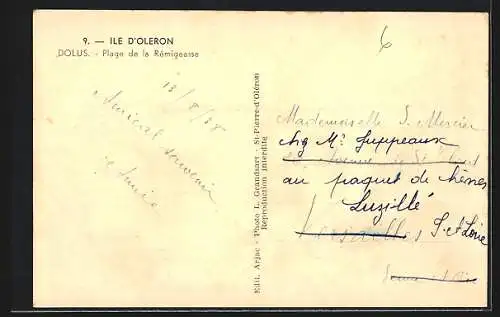 9. — ILE D'OLERON
DOLUS. - Plage de la Rémigeasse
6
13/8/38
Amical souvenir
Edit. Arjac - Photo L. Grandsart - St-Pierre-d'Oléron
Reproduction interdite
Mademoiselle S. Mercier
chez Mr Juppeaux
Avenue de St
au paquet de chênes
Luzillé
Versailles I. et Loire
Seine et Oise